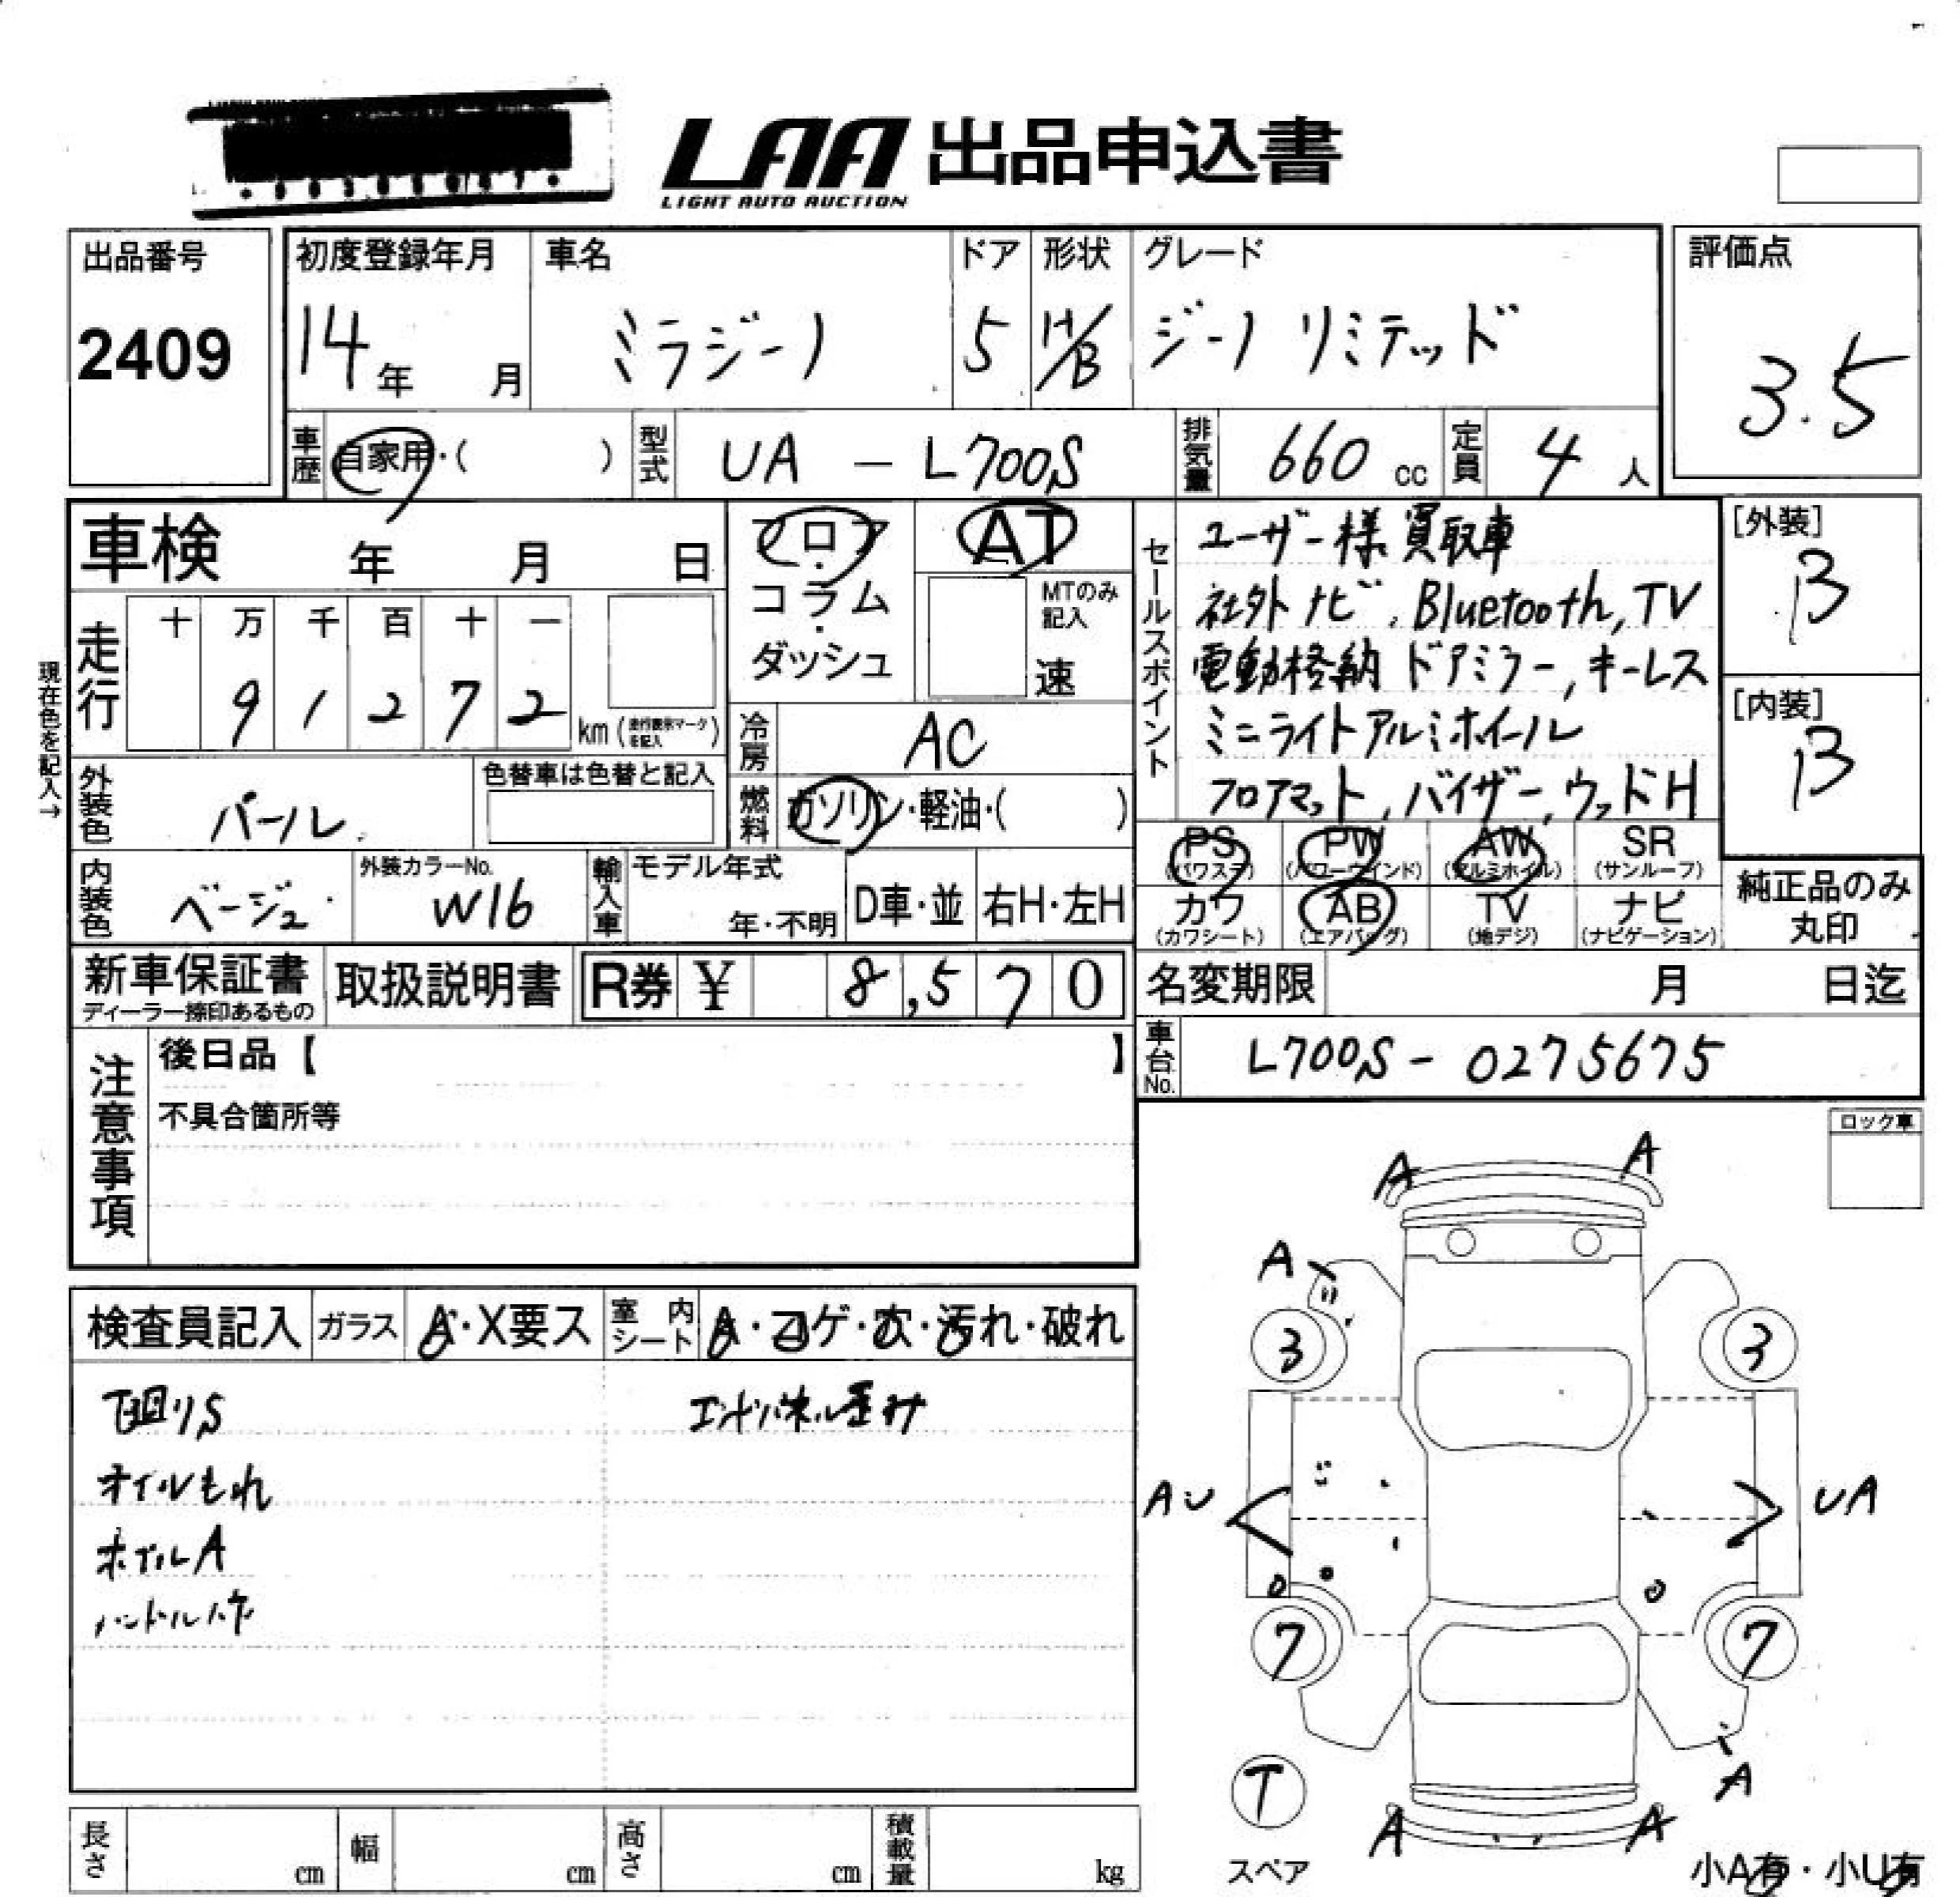 LAA 出品申込書
LIGHT AUTO AUCTION
出品番号
2409
初度登録年月
14年 月
車名
ミラジーノ
ドア
5
形状
H/B
グレード
ジーノ リミテッド
評価点
3.5
車歴
自家用・( )
型式
UA - L700S
排気量
660 cc
定員
4 人
車検 年 月 日
フロア
・
コラム
・
ダッシュ
AT
MTのみ
記入
速
セールスポイント
ユーザー様買取車
社外ナビ, Bluetooth, TV
電動格納ドアミラー, キーレス
ミニライトアルミホイール
フロアマット, バイザー, ウッドH
[外装]
B
[内装]
B
現在色を記入→
走行
十 万 千 百 十 一
9 1 2 7 2
km (走行表示マークを記入)
冷房
AC
外装色
パール
色替車は色替と記入
燃料
ガソリン・軽油・( )
PS
(パワステ)
PW
(パワーウインド)
AW
(アルミホイル)
SR
(サンルーフ)
カワ
(カワシート)
AB
(エアバッグ)
TV
(地デジ)
ナビ
(ナビゲーション)
純正品のみ
丸印
内装色
ベージュ
外装カラーNo.
W16
輸入車
モデル年式
年・不明
D車・並
右H・左H
新車保証書
ディーラー捺印あるもの
取扱説明書
R券 ¥ 8,570
名変期限 月 日迄
車台No.
L700S - 0275675
注意事項
後日品【 】
不具合箇所等
ロック車
検査員記入
ガラス
A・X要ス
室内
シート
A・コゲ・穴・汚れ・破れ
下回りS
オイルもれ
ホイルA
ハンドルハゲ
エンドパネル歪み
A
A
A
3
3
AU
UA
7
7
T
スペア
A
A
A
小A有・小U有
長さ
cm
幅
cm
高さ
cm
積載量
kg